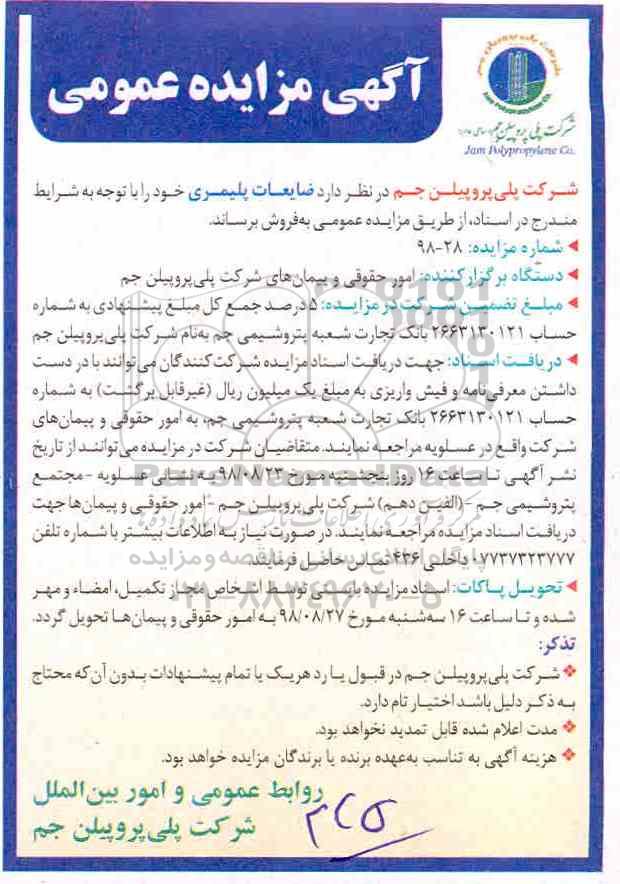 آگهی مزایده عمومی
Jam Polypropylene Co.
شرکت پلی پروپیلن جم
Jam Polypropylene Co.
شرکت پلی‌پروپیلن جم در نظر دارد ضایعات پلیمری خود را با توجه به شرایط
مندرج در اسناد، از طریق مزایده عمومی به‌فروش برساند.
شماره مزایده: ۲۸-۹۸
دستگاه برگزارکننده: امور حقوقی و پیمان‌های شرکت پلی‌پروپیلن جم
مبلغ تضمین شرکت در مزایده: ۵ درصد جمع کل مبلغ پیشنهادی به شماره
حساب ۲۶۶۳۱۳۰۱۲۱ بانک تجارت شعبه پتروشیمی جم به‌نام شرکت پلی‌پروپیلن جم
دریافت اسناد: جهت دریافت اسناد مزایده شرکت‌کنندگان می‌توانند با در دست
داشتن معرفی‌نامه و فیش واریزی به مبلغ یک میلیون ریال (غیرقابل برگشت) به شماره
حساب ۲۶۶۳۱۳۰۱۲۱ بانک تجارت شعبه پتروشیمی جم، به امور حقوقی و پیمان‌های
شرکت واقع در عسلویه مراجعه نمایند. متقاضیان شرکت در مزایده می‌توانند از تاریخ
نشر آگهی تا ساعت ۱۶ روز پنجشنبه مورخ ۹۸/۰۸/۲۳ به نشانی عسلویه - مجتمع
پتروشیمی جم - (الفین دهم) شرکت پلی‌پروپیلن جم - امور حقوقی و پیمان‌ها جهت
دریافت اسناد مزایده مراجعه نمایند. در صورت نیاز به اطلاعات بیشتر با شماره تلفن
۰۷۷۳۷۳۲۳۷۷۷ داخلی ۴۳۶ تماس حاصل فرمایند.
تحویل پاکات: اسناد مزایده بایستی توسط اشخاص مجاز تکمیل، امضاء و مهر
شده و تا ساعت ۱۶ سه‌شنبه مورخ ۹۸/۰۸/۲۷ به امور حقوقی و پیمان‌ها تحویل گردد.
تذکر:
شرکت پلی‌پروپیلن جم در قبول یا رد هریک یا تمام پیشنهادات بدون آن‌که محتاج
به ذکر دلیل باشد اختیار تام دارد.
مدت اعلام شده قابل تمدید نخواهد بود.
هزینه آگهی به تناسب به‌عهده برنده یا برندگان مزایده خواهد بود.
روابط عمومی و امور بین‌الملل
شرکت پلی‌پروپیلن جم
ParsNamadData
۰۲۱-۸۸۳۴۹۶۷۰-۵